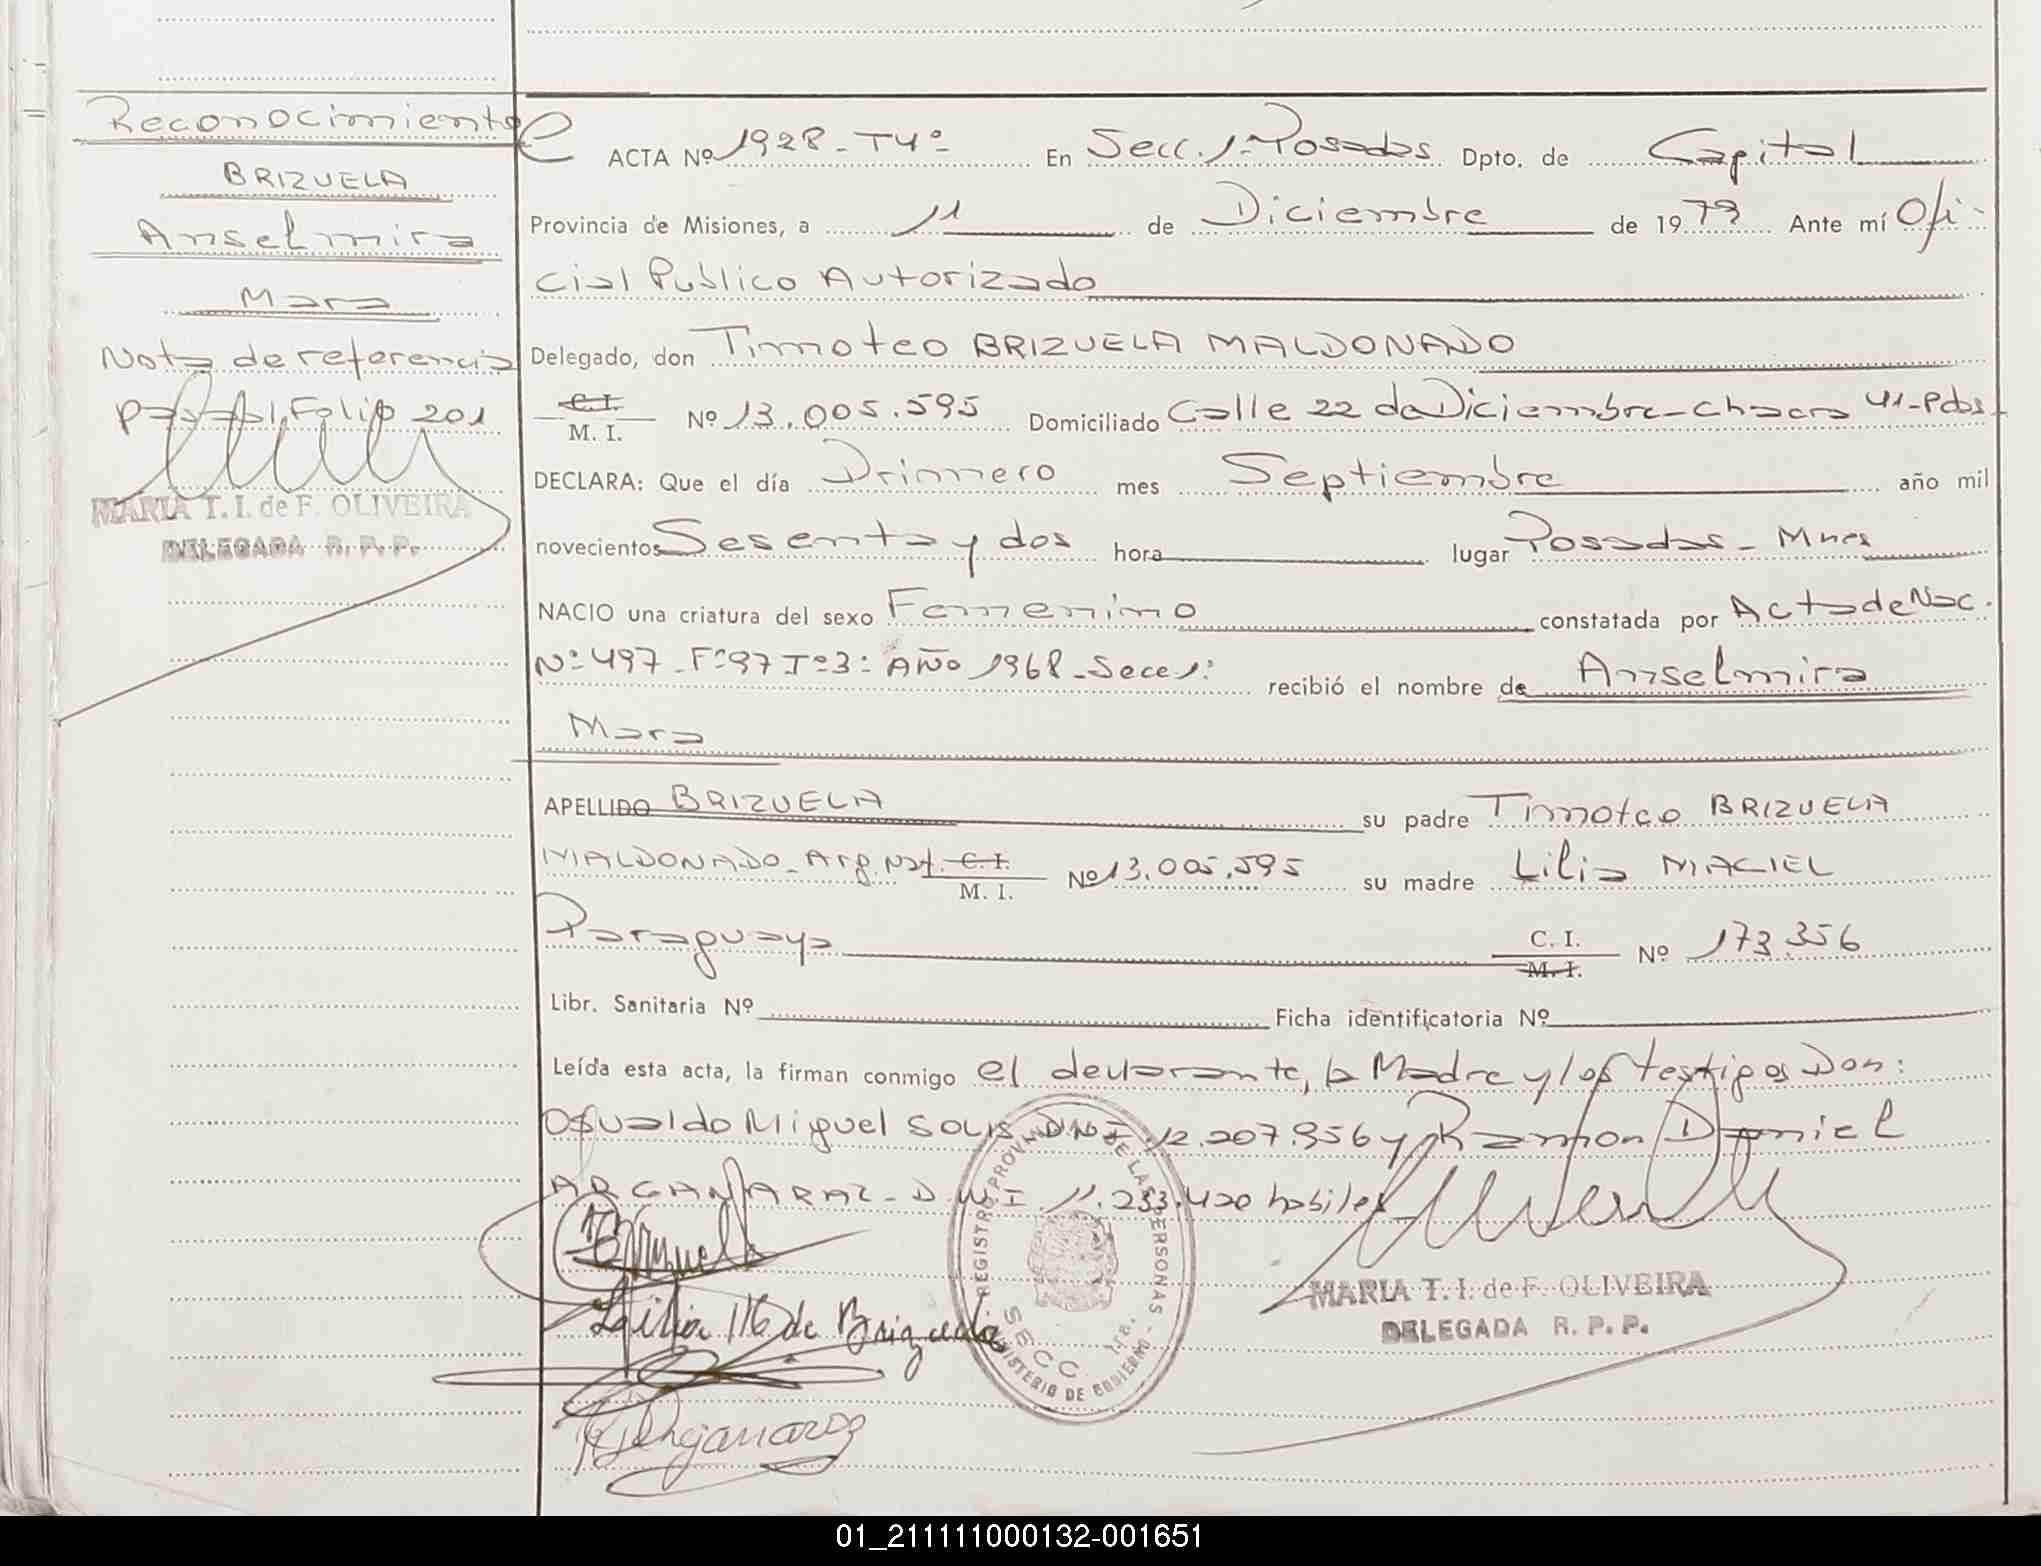 Reconocimiento
BRIZUELA
Anselmira
Mara
Nota de referencia
Folio 201
MARIA T. I. de F. OLIVEIRA
DELEGADA R. P. P.
ACTA Nº 1928-T4º En Secc. 1-Posadas Dpto. de Capital
Provincia de Misiones, a 11 de Diciembre de 1979 Ante mí Ofi-
cial Publico Autorizado
Delegado, don Timoteo BRIZUELA MALDONADO
C.I.
M. I. Nº 13.005.595 Domiciliado Calle 22 de Diciembre-chacra 41-Pdas
DECLARA: Que el día Primero mes Septiembre año mil
novecientos Sesenta y dos hora lugar Posadas-Mnes
NACIO una criatura del sexo Femenino constatada por Acta de Nac.
Nº 497-Fº97 Tº3º AÑo 1968-Secc 1º recibió el nombre de Anselmira
Mara
APELLIDO BRIZUELA su padre Timoteo BRIZUELA
MALDONADO-Arg. Nat. C.I.
M. I. Nº 13.005.595 su madre Lilia MACIEL
Paraguaya C. I.
M. I. Nº 173.356
Libr. Sanitaria Nº Ficha identificatoria Nº
Leída esta acta, la firman conmigo el declarante, la Madre y los testigos Don:
Osvaldo Miguel SOLIS D.N.I. 12.207.956 y Ramon Daniel
ARGAÑARAZ-D.N.I 11.233.420 habiles
Brizuela
Lilia M de Brizuela
REGISTRO PROVINCIAL DE LAS PERSONAS
MINISTERIO DE GOBIERNO
SECC 1ra.
MARIA T. I. de F. OLIVEIRA
DELEGADA R. P. P.
Arganaraz
01_211111000132-001651